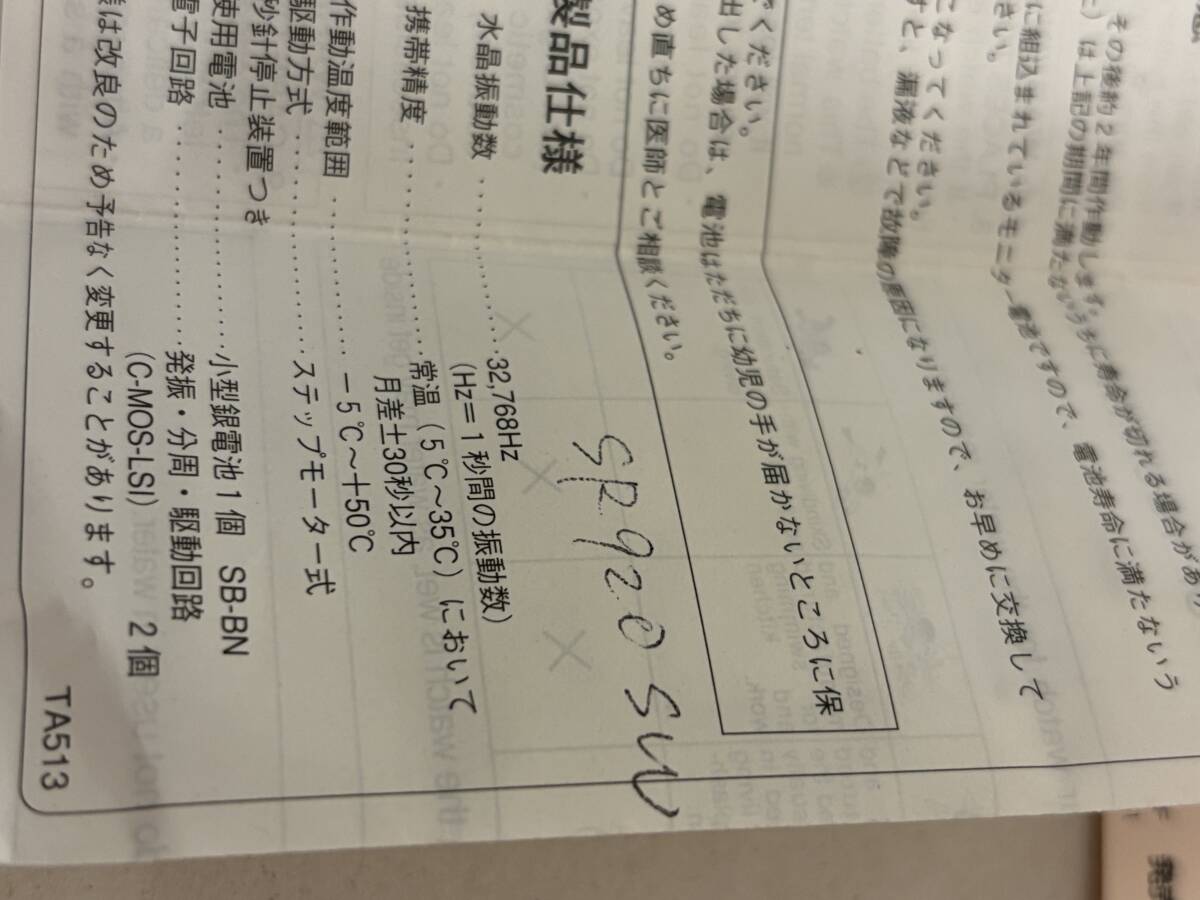 その後約2年間作動します。
は上記の期間に満たないうちに寿命が切れる場合があり
に組込まれているモニター電池ですので、電池寿命に満たないう
さい。
こなってください。
すと、漏液などで故障の原因になりますので、お早めに交換して
ください。
出した場合は、電池はただちに幼児の手が届かないところに保
め直ちに医師とご相談ください。
製品仕様
SR920SW
水晶振動数 32,768Hz
(Hz=1秒間の振動数)
携帯精度 常温(5℃~35℃)において
月差±30秒以内
作動温度範囲 -5℃~+50℃
駆動方式 ステップモーター式
秒針停止装置つき
使用電池 小型銀電池1個 SB-BN
電子回路 発振・分周・駆動回路
(C-MOS-LSI) 2個
様は改良のため予告なく変更することがあります。
TA513